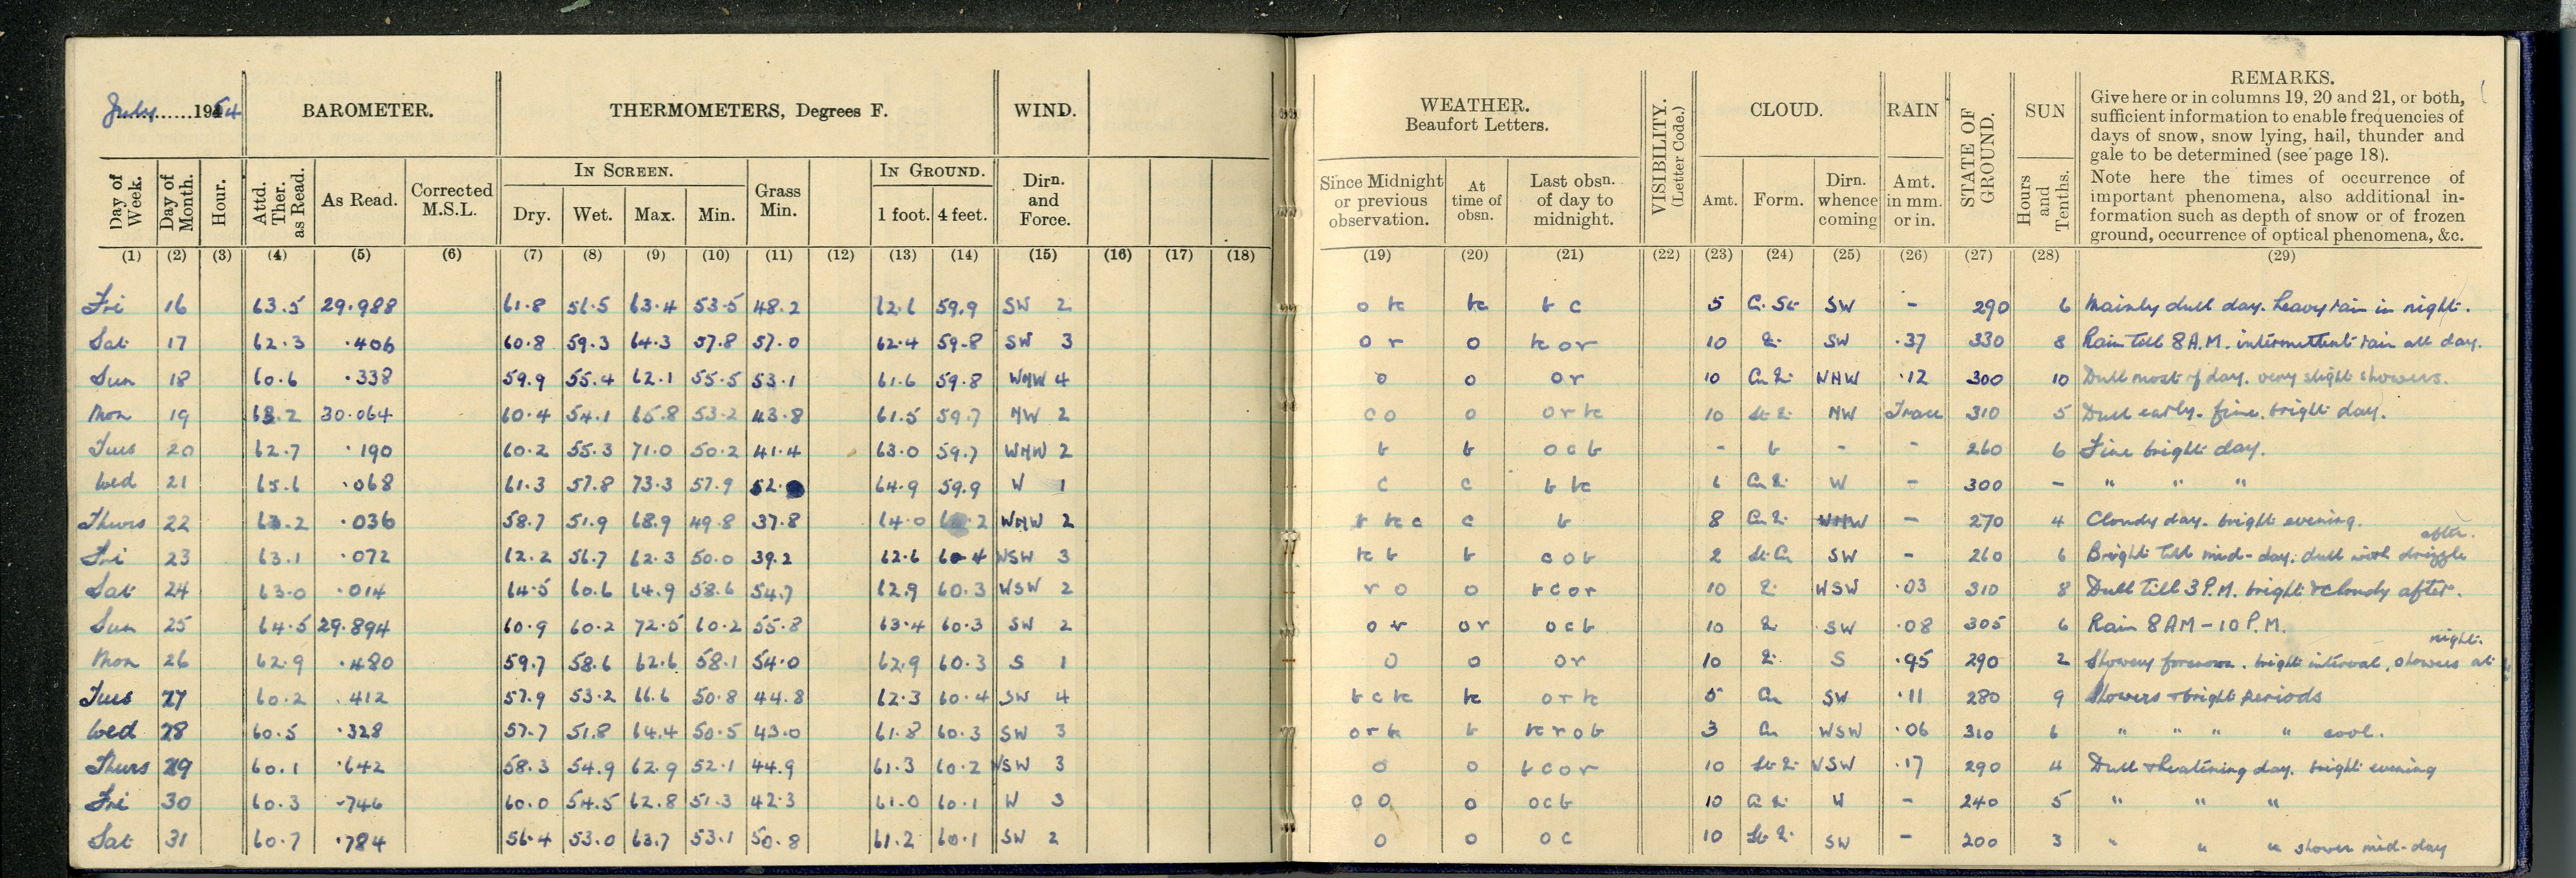 July 1954 BAROMETER. THERMOMETERS, Degrees F. WIND. WEATHER. Beaufort Letters. VISIBILITY. (Letter Code.) CLOUD. RAIN STATE OF GROUND. SUN REMARKS.
Give here or in columns 19, 20 and 21, or both,
sufficient information to enable frequencies of
days of snow, snow lying, hail, thunder and
gale to be determined (see page 18).
Note here the times of occurrence of
important phenomena, also additional in-
formation such as depth of snow or of frozen
ground, occurrence of optical phenomena, &c.
Day of Week. Day of Month. Hour. Attd. Ther. as Read. As Read. Corrected M.S.L. IN SCREEN. Dry. Wet. Max. Min. Grass Min. IN GROUND. 1 foot. 4 feet. Dirn. and Force. Since Midnight or previous observation. At time of obsn. Last obsn. of day to midnight. Amt. Form. Dirn. whence coming Amt. in mm. or in. Hours and Tenths.
(1) (2) (3) (4) (5) (6) (7) (8) (9) (10) (11) (12) (13) (14) (15) (16) (17) (18) (19) (20) (21) (22) (23) (24) (25) (26) (27) (28) (29)
Fri 16 63.5 29.988 61.8 56.5 63.4 53.5 48.2 62.6 59.9 SW 2 o bc bc b c 5 SW - 290 6 Mainly dull day. heavy rain in night.
Sat 17 62.3 .406 60.8 59.3 64.3 57.8 57.0 62.4 59.8 SW 3 o r o bc o r 10 SW .37 330 8 Rain till 8 A.M. intermittent rain all day.
Sun 18 60.6 .338 59.9 55.4 62.1 55.5 53.1 61.6 59.8 WNW 4 o o o r 10 WNW .12 300 10 Dull most of day. very slight showers.
Mon 19 30.064 60.4 54.1 65.8 53.2 43.8 61.5 59.7 NW 2 c o o o r bc 10 NW Trace 310 5 Dull early. fine. bright day.
Tues 20 62.7 .190 60.2 55.3 71.0 50.2 41.4 63.0 59.7 WNW 2 b b o c b - b - - 260 6 Fine bright day.
Wed 21 65.6 .068 61.3 57.8 73.3 57.9 52. 64.9 59.9 W 1 c c b bc 6 W - 300 - " " "
Thurs 22 .036 58.7 51.9 68.9 49.8 37.8 64.0 WNW 2 b bc c c b 8 WNW - 270 4 Cloudy day. bright evening.
Fri 23 63.1 .072 62.2 56.7 62.3 50.0 39.2 62.6 60.4 WSW 3 bc b b c o b 2 SW - 260 6 Bright till mid-day. dull with drizzle after.
Sat 24 63.0 .014 64.5 60.6 64.9 58.6 54.7 62.9 60.3 WSW 2 r o o b c o r 10 WSW .03 310 8 Dull till 3 P.M. bright & cloudy after.
Sun 25 64.5 29.894 60.9 60.2 72.5 60.2 55.8 63.4 60.3 SW 2 o r o r o c b 10 SW .08 305 6 Rain 8 AM - 10 P.M.
Mon 26 62.9 .480 59.7 58.6 62.6 58.1 54.0 62.9 60.3 S 1 o o o r 10 S .95 290 2 Showery forenoon. bright interval, showers at night.
Tues 27 60.2 .412 57.9 53.2 66.6 50.8 44.8 62.3 60.4 SW 4 b c bc bc o r bc 5 Cu SW .11 280 9 Showers & bright periods
Wed 28 60.5 .328 57.7 51.8 64.4 50.5 43.0 61.8 60.3 SW 3 o r b b bc r o b 3 Cu WSW .06 310 6 " " " " cool.
Thurs 29 60.1 .642 58.3 54.9 62.9 52.1 44.9 61.3 60.2 WSW 3 o o b c o r 10 WSW .17 290 4 Dull & heatening day. bright evening
Fri 30 60.3 .746 60.0 54.5 62.8 51.3 42.3 61.0 60.1 W 3 c o o o c b 10 W - 240 5 " " "
Sat 31 60.7 .784 56.4 53.0 63.7 53.1 50.8 61.2 60.1 SW 2 o o o c 10 SW - 200 3 " " " shower mid-day